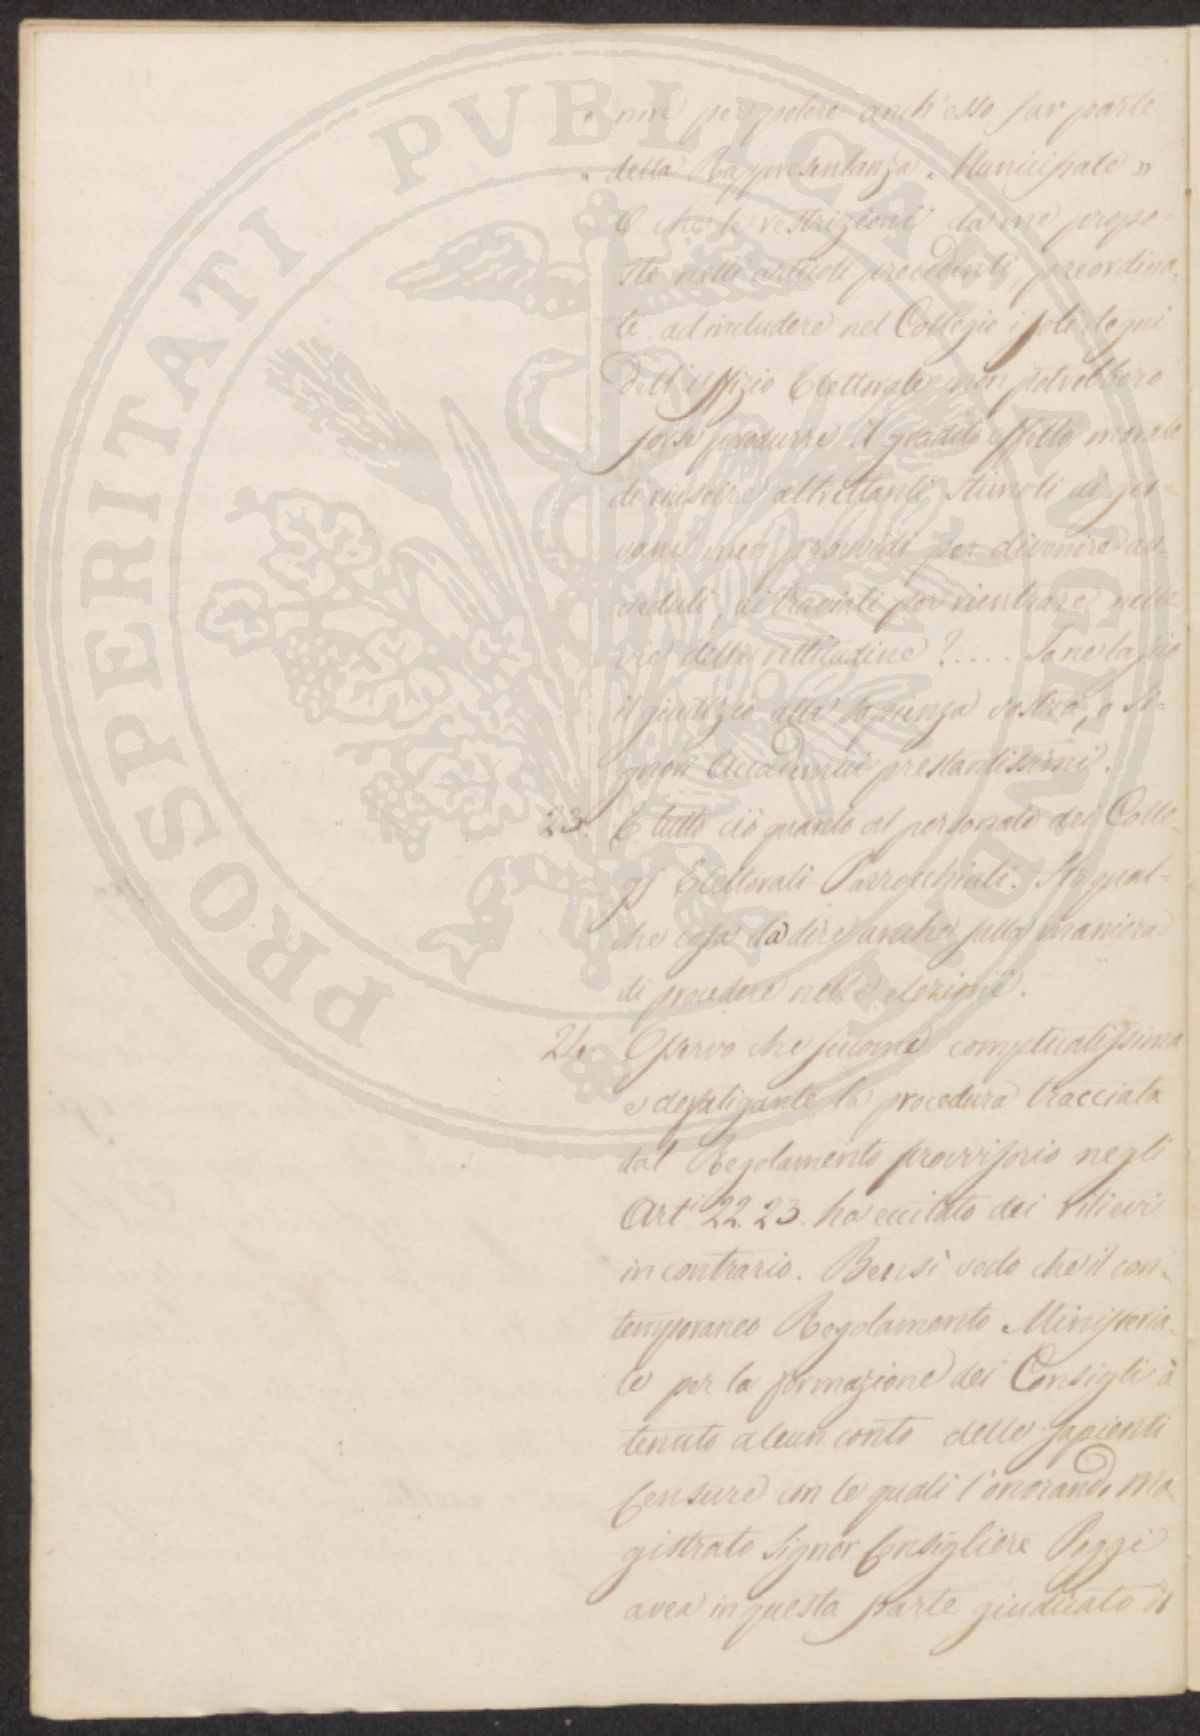 " nire per potere anch'esso far parte
" della Rappresentanza " Municipale "
E che le restrizioni da me propo=
ste nelli articoli precedenti, preordina=
te ad includere nel Collegio i soli degni
dell'uffizio Elettorale non potrebbero
forse produrre il gradito effetto morale
di riuscire altrettanti stimoli ai gio=
vani men provvidi per divenire as=
sidui, ai traviati per rientrare nelle
vie della rettitudine ?..... Io ne lascio
il giudizio alla sapienza vostra, o Si=
gnori Accademici prestantissimi.
23. E tutto ciò quanto al personale dei Colle=
gj Elettorali Parrocchiali. Ho qual=
che cosa da dire anche sulla maniera
di procedere nelle elezioni.
24. Osservo che siccome complicatissima
e defatigante la procedura tracciata
dal Regolamento provvisorio negli
Arti 22. 23. ha eccitato dei rilievi
in contrario. Bensì vedo che il con=
temporaneo Regolamento Ministeria=
le per la formazione dei Consigli à
tenuto alcun conto delle sapienti
censure con le quali l'onorando Ma=
gistrato Signor Consigliere Poggi
avea in questa parte giudicato il
PROSPERITATI PVBLICAE AVGENDAE